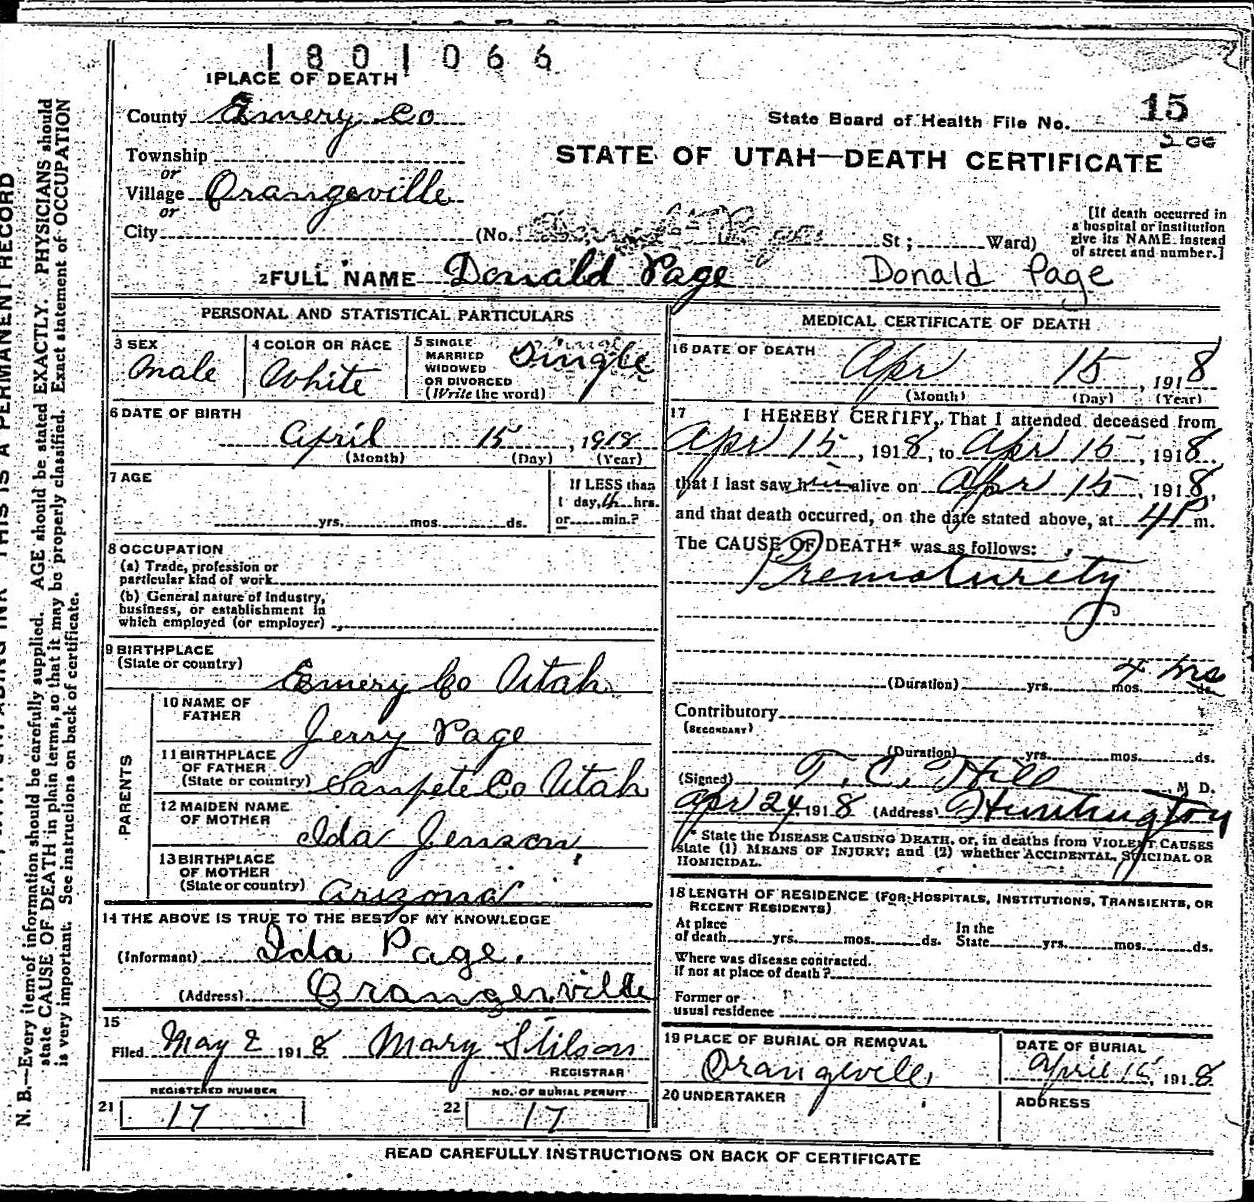 1801066
1 PLACE OF DEATH
County Emery Co
State Board of Health File No. 15
STATE OF UTAH—DEATH CERTIFICATE
Township
or
Village Orangeville
or
City (No. St; Ward)
[If death occurred in
a hospital or institution
give its NAME instead
of street and number.]
2 FULL NAME Donald Page Donald Page
PERSONAL AND STATISTICAL PARTICULARS
3 SEX
Male
4 COLOR OR RACE
White
5 SINGLE
MARRIED
WIDOWED
OR DIVORCED
(Write the word)
Single
6 DATE OF BIRTH
April 15, 1918
(Month) (Day) (Year)
7 AGE
yrs. mos. ds.
If LESS than
1 day, 4 hrs.
or min.?
8 OCCUPATION
(a) Trade, profession or
particular kind of work
(b) General nature of industry,
business, or establishment in
which employed (or employer)
9 BIRTHPLACE
(State or country)
Emery Co Utah
PARENTS
10 NAME OF
FATHER
Jerry Page
11 BIRTHPLACE
OF FATHER
(State or country)
Sanpete Co Utah
12 MAIDEN NAME
OF MOTHER
Ida Jenson
13 BIRTHPLACE
OF MOTHER
(State or country)
Arizona
14 THE ABOVE IS TRUE TO THE BEST OF MY KNOWLEDGE
(Informant) Ida Page.
(Address) Orangeville
15
Filed May 2 1918 Mary Stilson
REGISTRAR
REGISTERED NUMBER
21 17
NO. OF BURIAL PERMIT
22 17
MEDICAL CERTIFICATE OF DEATH
16 DATE OF DEATH
Apr 15, 1918
(Month) (Day) (Year)
17 I HEREBY CERTIFY, That I attended deceased from
Apr 15, 1918, to Apr 15, 1918
that I last saw him alive on Apr 15, 1918,
and that death occurred, on the date stated above, at 4 P m.
The CAUSE OF DEATH* was as follows:
Prematurity
4 hrs
(Duration) yrs. mos. ds.
Contributory
(SECONDARY)
(Duration) yrs. mos. ds.
(Signed) T. C. Hill M D.
Apr 24, 1918 (Address) Huntington
* State the DISEASE CAUSING DEATH, or, in deaths from VIOLENT CAUSES
state (1) MEANS OF INJURY; and (2) whether ACCIDENTAL, SUICIDAL OR
HOMICIDAL.
18 LENGTH OF RESIDENCE (FOR HOSPITALS, INSTITUTIONS, TRANSIENTS, OR
RECENT RESIDENTS)
At place
of death yrs. mos. ds.
In the
State yrs. mos. ds.
Where was disease contracted,
if not at place of death?
Former or
usual residence
19 PLACE OF BURIAL OR REMOVAL
Orangeville
DATE OF BURIAL
April 15, 1918
20 UNDERTAKER
ADDRESS
READ CAREFULLY INSTRUCTIONS ON BACK OF CERTIFICATE
N. B.—Every item of information should be carefully supplied. AGE should be stated EXACTLY. PHYSICIANS should
state CAUSE OF DEATH in plain terms, so that it may be properly classified. Exact statement of OCCUPATION
is very important. See instructions on back of certificate.
THIS IS A PERMANENT RECORD